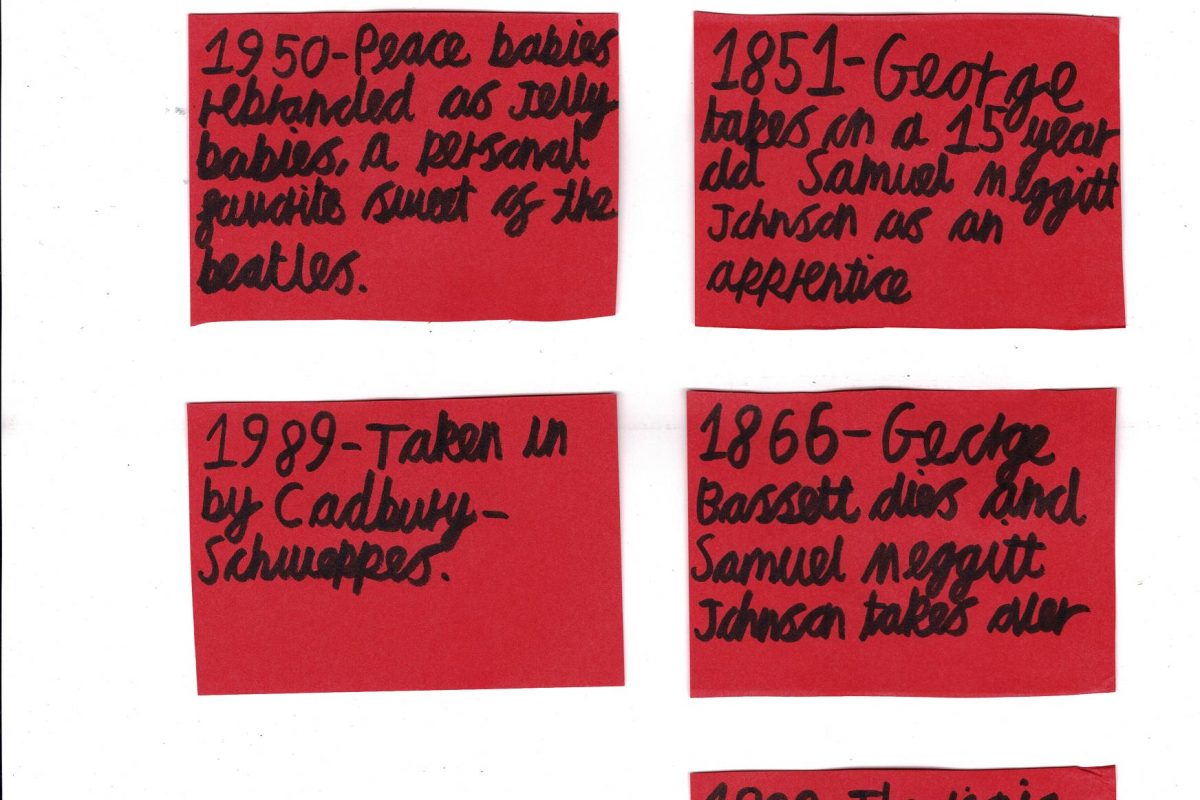 1950-Peace babies
rebranded as Jelly
babies, a personal
favorite sweet of the
beatles.
1851-George
takes on a 15 year
old Samuel Meggitt
Johnson as an
apprentice
1989-Taken in
by Cadbury-
Schweppes.
1866-George
Bassett dies and
Samuel Meggitt
Johnson takes over